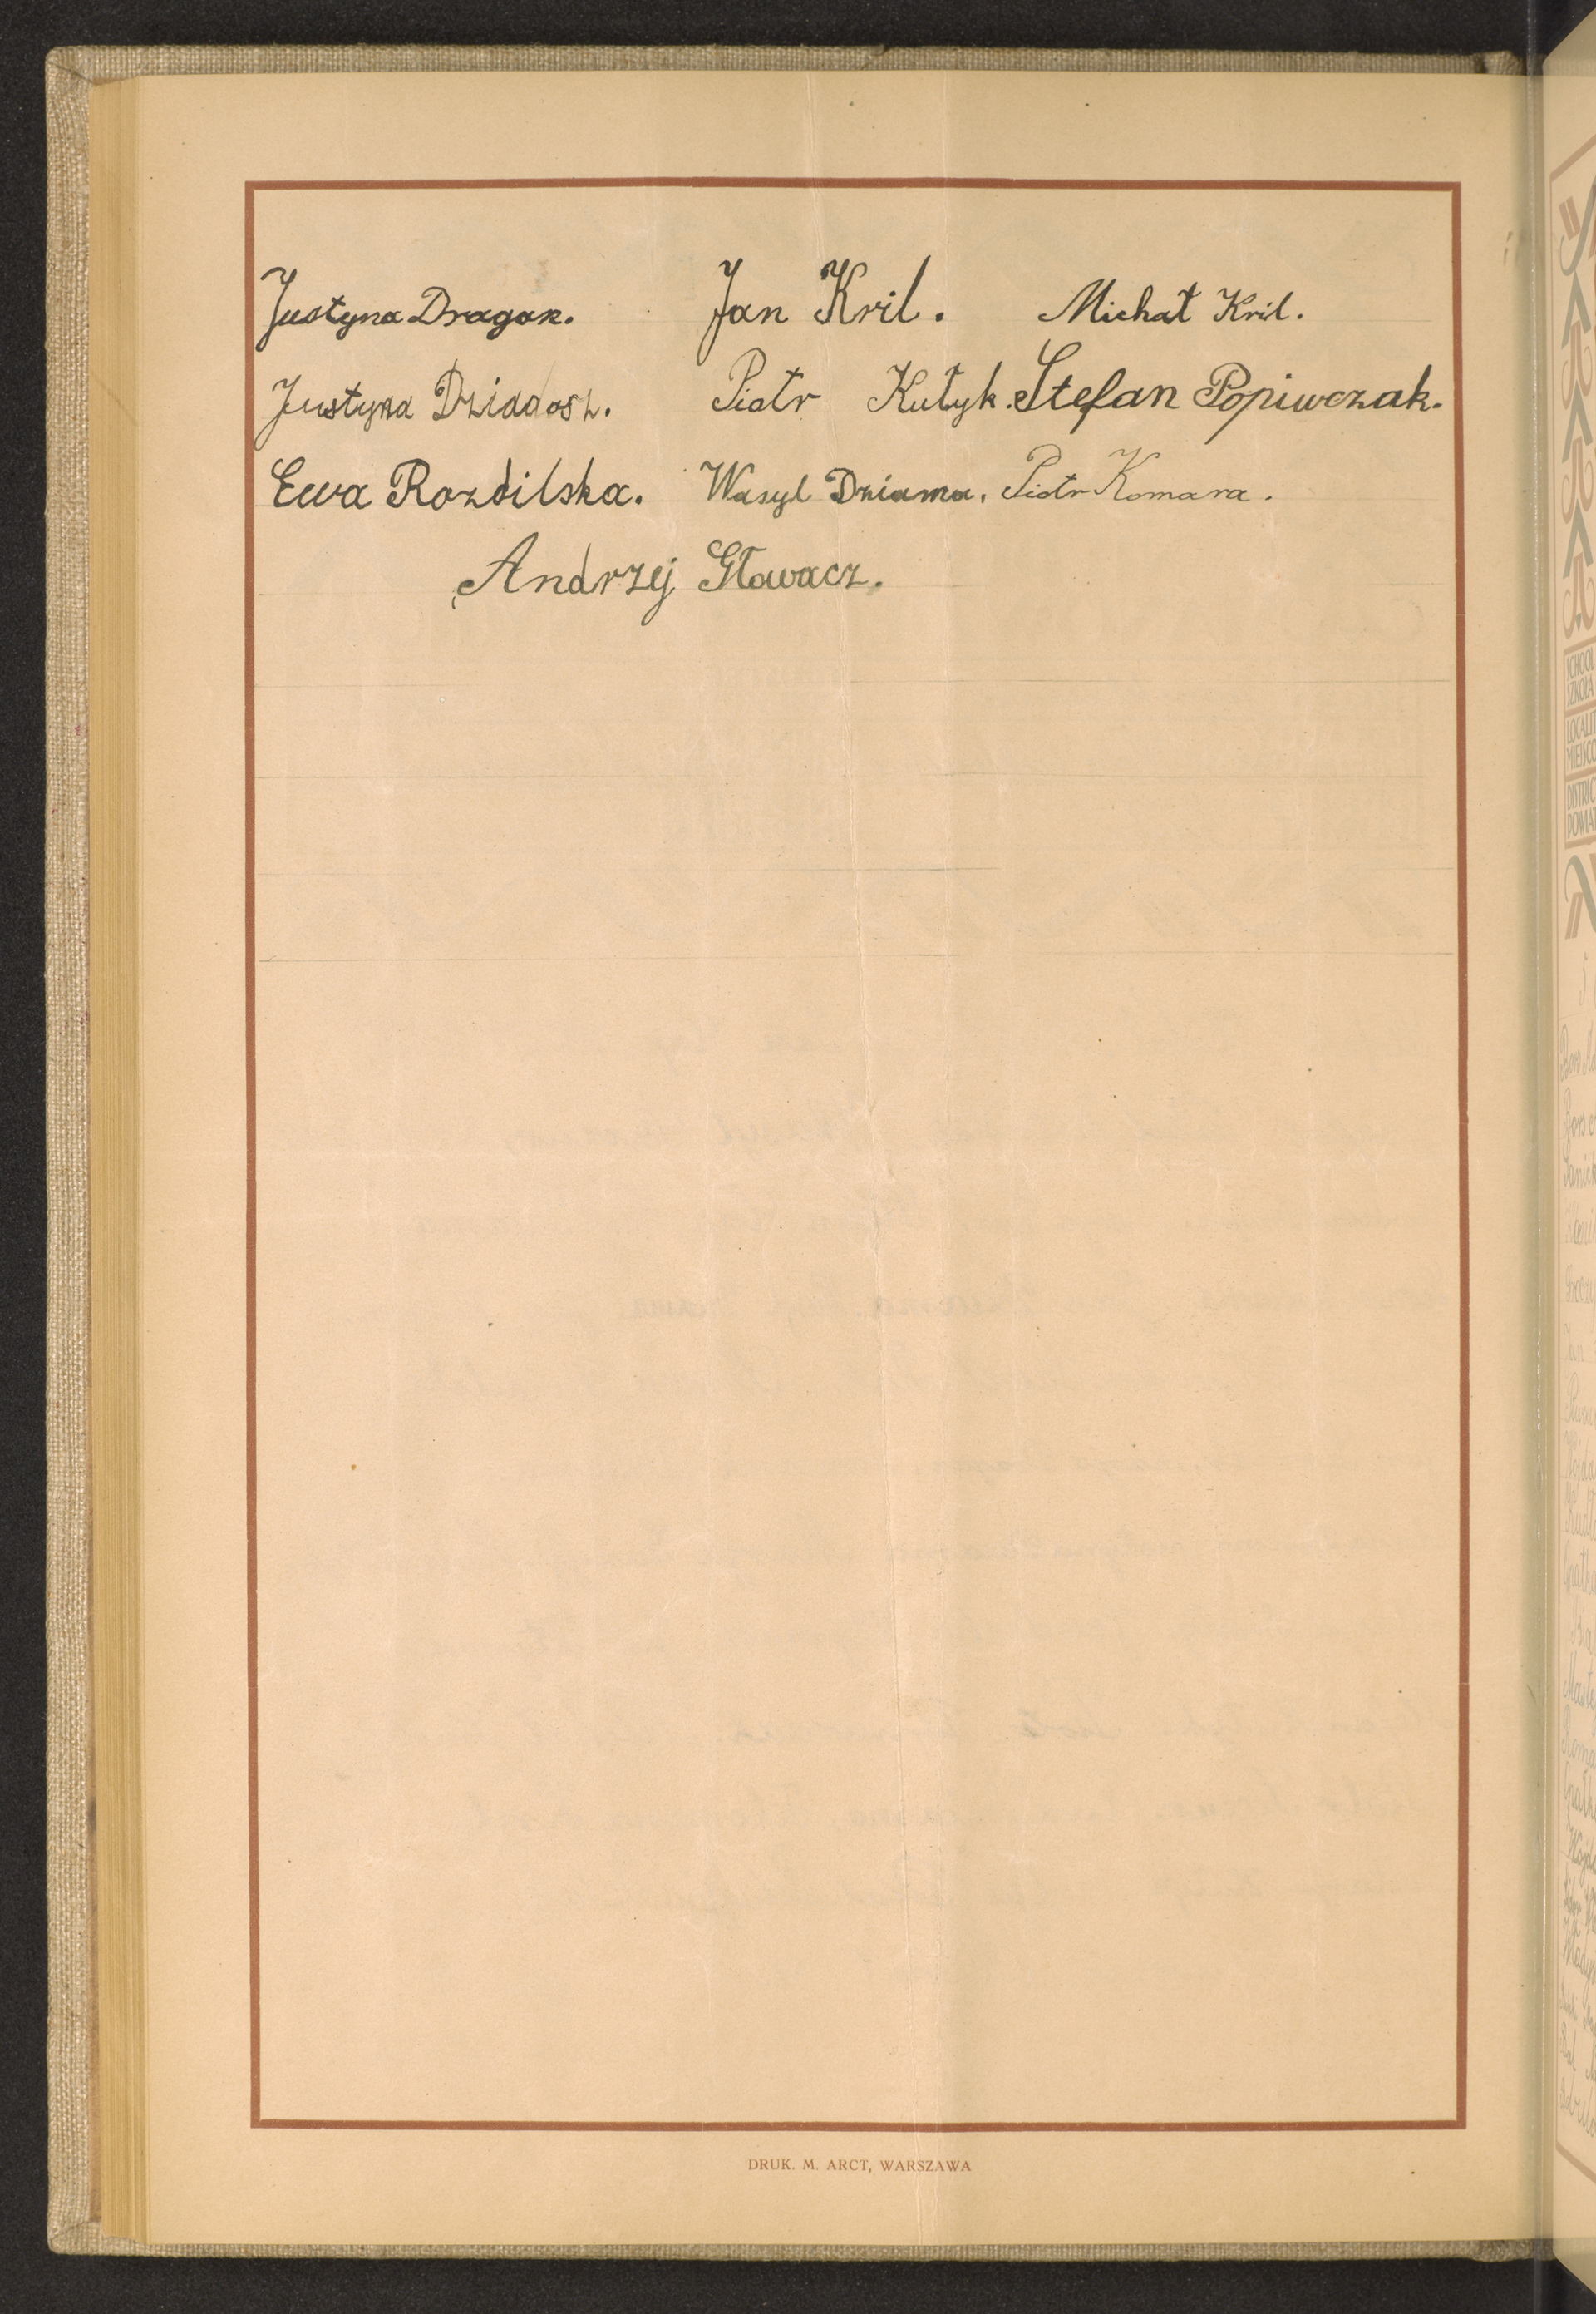 Justyna Dragan. Jan Kril. Michał Kril.
Justyna Dziadosz. Piotr Kutyk. Stefan Popiwczak.
Ewa Rozdilska. Wasyl Dziama. Piotr Komara.
Andrzej Głowacz.
DRUK. M. ARCT, WARSZAWA